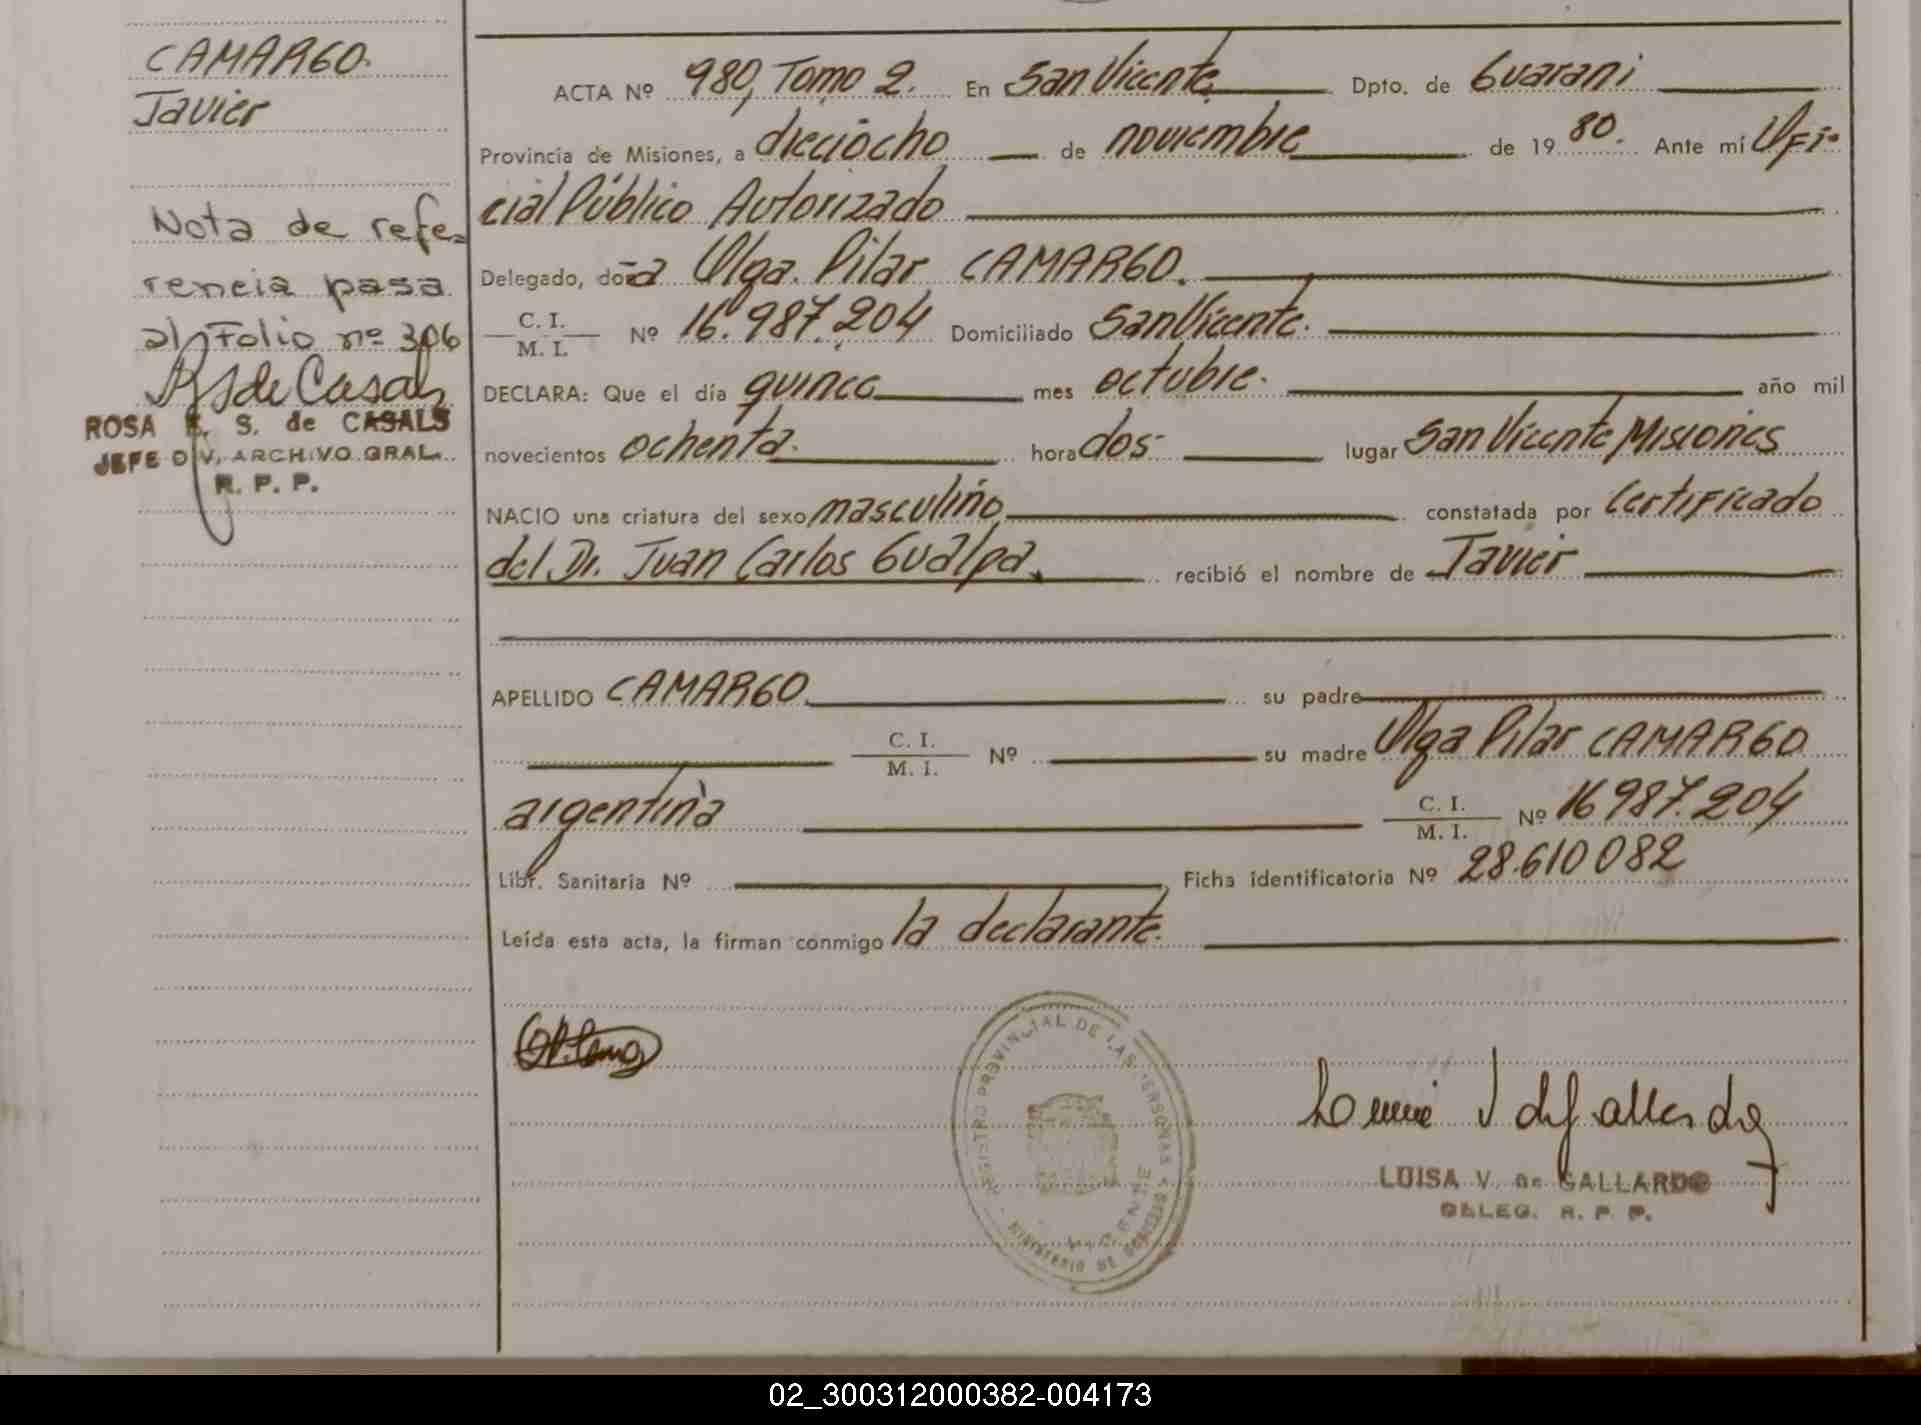 CAMARGO.
Javier
Nota de refe-
rencia pasa
al Folio nº 306
RSde Casals
ROSA E. S. de CASALS
JEFE DIV. ARCHIVO GRAL.
R. P. P.
ACTA Nº 980, Tomo 2. En San Vicente Dpto. de Guarani
Provincia de Misiones, a dieciocho de noviembre de 1980. Ante mí Ofi-
cial Público Autorizado
Delegado, doña Olga Pilar CAMARGO.
C. I.
M. I. Nº 16.987.204 Domiciliado San Vicente.
DECLARA: Que el día quince mes octubre. año mil
novecientos ochenta. hora dos- lugar San Vicente, Misiones
NACIO una criatura del sexo masculino constatada por Certificado
del Dr. Juan Carlos Gualpa. recibió el nombre de Javier
APELLIDO CAMARGO su padre
C. I.
M. I. Nº su madre Olga Pilar CAMARGO
argentina C. I.
M. I. Nº 16987.204
Libr. Sanitaria Nº Ficha identificatoria Nº 28.610082
Leída esta acta, la firman conmigo la declarante.
REGISTRO PROVINCIAL DE LAS PERSONAS
MINISTERIO DE GOBIERNO
VICENTE
LUISA V. de GALLARDO
DELEG. R. P. P.
02_300312000382-004173